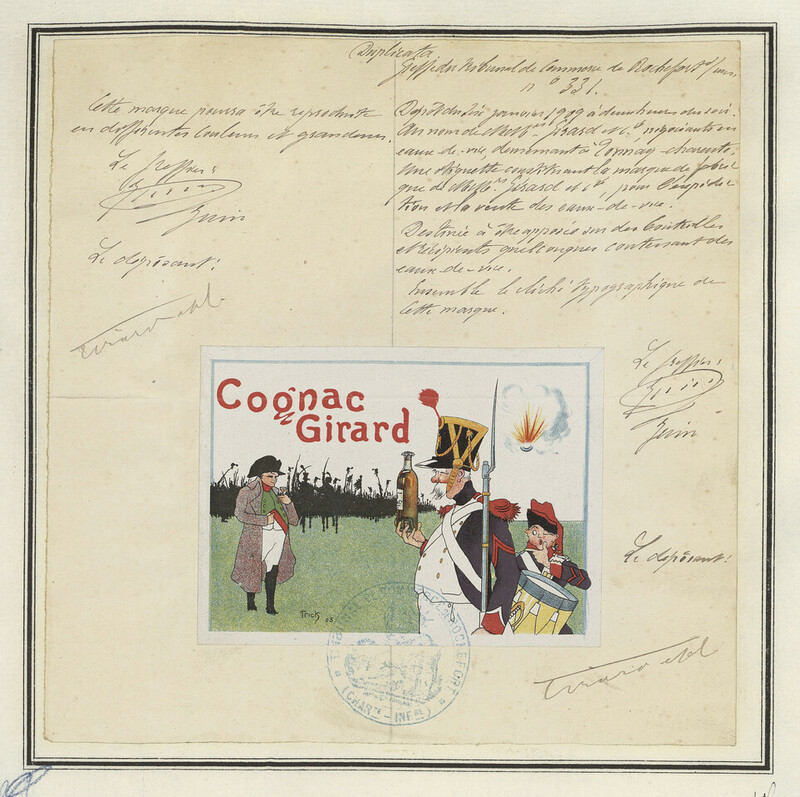 Duplicata
Greffe du Tribunal de Commerce de Rochefort s/mer
n° 331.
Cette marque pourra être reproduite
en différentes couleurs et grandeurs.
Le Greffier:
Le déposant:
Dépôt du janvier 1909 à deux heures du soir.
Au nom de Girard et Cie négociants en
eaux-de-vie, demeurant à Tonnay-Charente.
Une étiquette constituant la marque de fabri
que de Girard et Cie pour l'expédi
tion et la vente des eaux-de-vie.
Destinée à être apposée sur des
et récipients quelconques contenant des
eaux-de-vie.
Ensemble le cliché typographique de
cette marque.
Le Greffier:
Le déposant:
Cognac
Girard
Trick 03
TRIBUNAL DE COMMERCE DE ROCHEFORT
(CHARTE - INFRE)